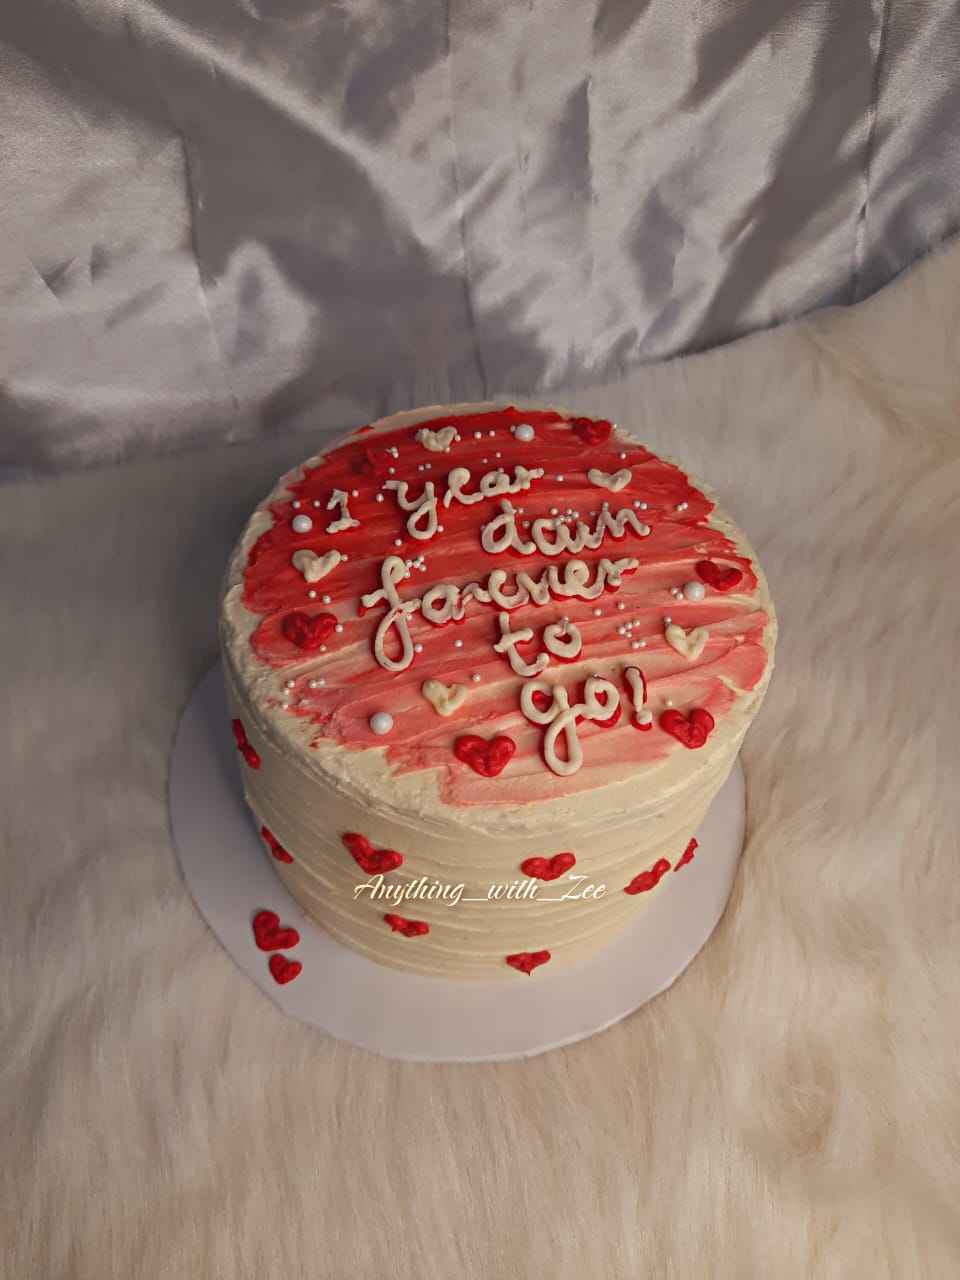 1 year
down
forever
to
go!
Anything_with_Zee